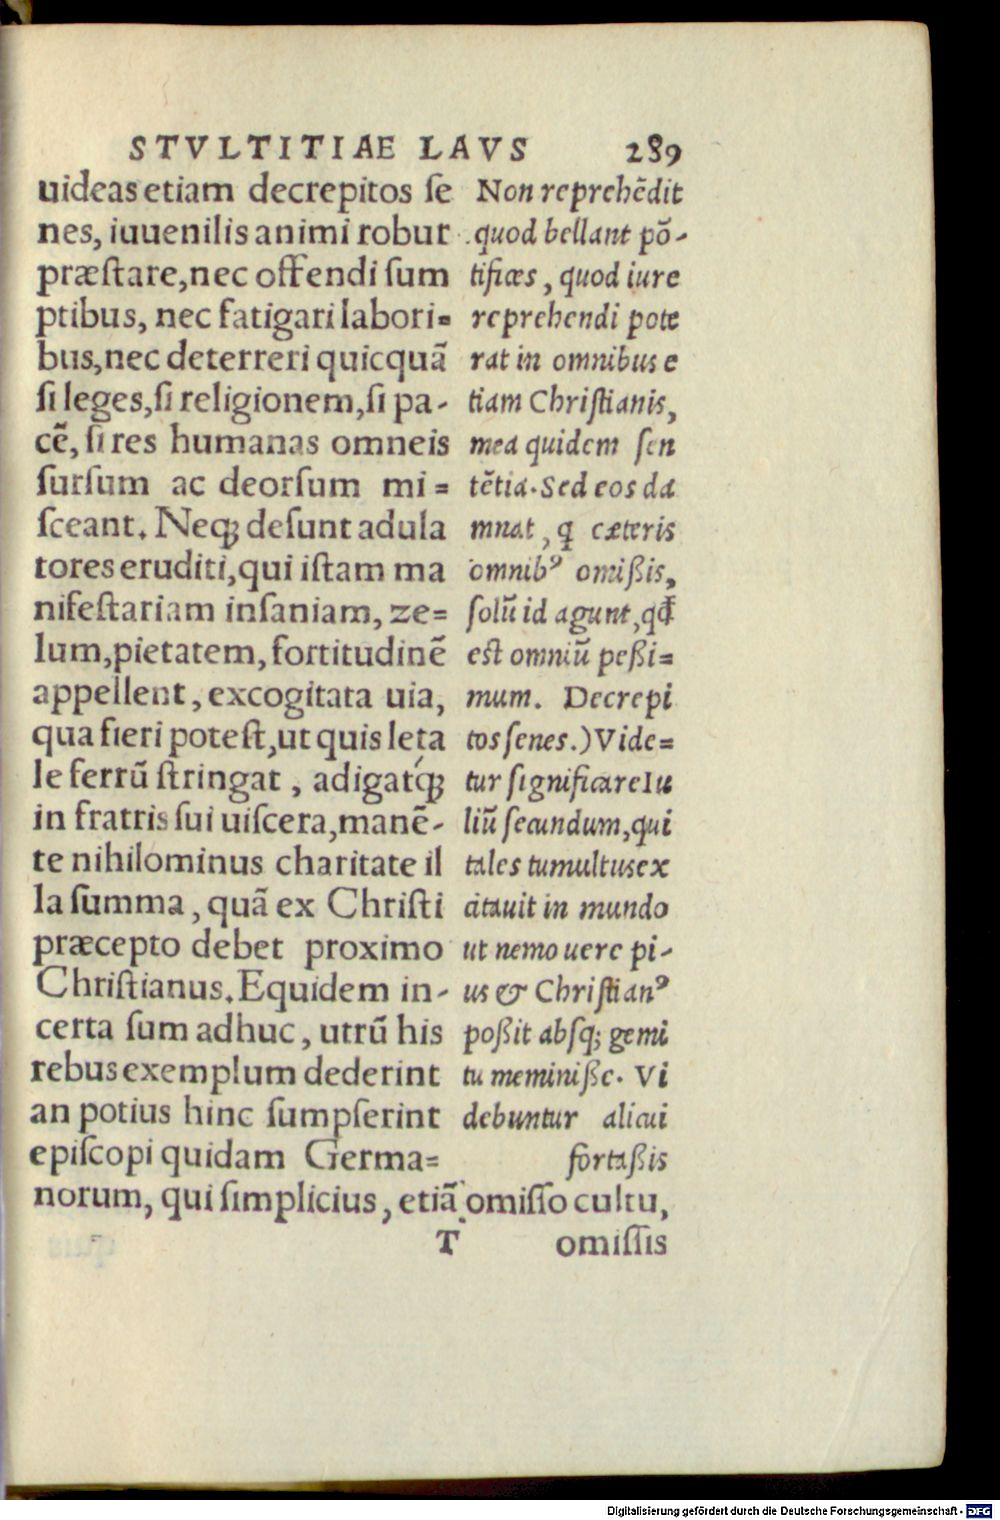 STVLTITIAE LAVS 289
uideas etiam decrepitos ſe
nes, iuuenilis animi robur
præſtare, nec offendi ſum
ptibus, nec fatigari labori=
bus, nec deterreri quicquā
ſi leges, ſi religionem, ſi pa-
cē, ſi res humanas omneis
ſurſum ac deorſum mi=
ſceant. Neqꝫ deſunt adula
tores eruditi, qui iſtam ma
nifeſtariam inſaniam, ze=
lum, pietatem, fortitudinē
appellent, excogitata uia,
qua fieri poteſt, ut quis leta
le ferrū ſtringat, adigatqꝫ
in fratris ſui uiſcera, manē-
te nihilominus charitate il
la ſumma, quā ex Chriſti
præcepto debet proximo
Chriſtianus. Equidem in-
certa ſum adhuc, utrū his
rebus exemplum dederint
an potius hinc ſumpſerint
epiſcopi quidam Germa=
norum, qui ſimplicius, etiā omiſſo cultu,
Non reprehēdit
quod bellant pō-
tifices, quod iure
reprehendi pote
rat in omnibus e
tiam Chriſtianis,
mea quidem ſen
tētia. Sed eos da
mnat, ꝗ cæteris
omnibꝰ omißis,
ſolū id agunt, qđ
eſt omniū peßi=
mum. Decrepi
tos ſenes.) Vide=
tur ſignificare Iu
liū ſecundum, qui
tales tumultus ex
citauit in mundo
ut nemo uere pi-
us & Chriſtianꝰ
poßit abſqꝫ gemi
tu meminiße. Vi
debuntur alicui
fortaßis
T omiſſis
Digitalisierung gefördert durch die Deutsche Forschungsgemeinschaft - DFG